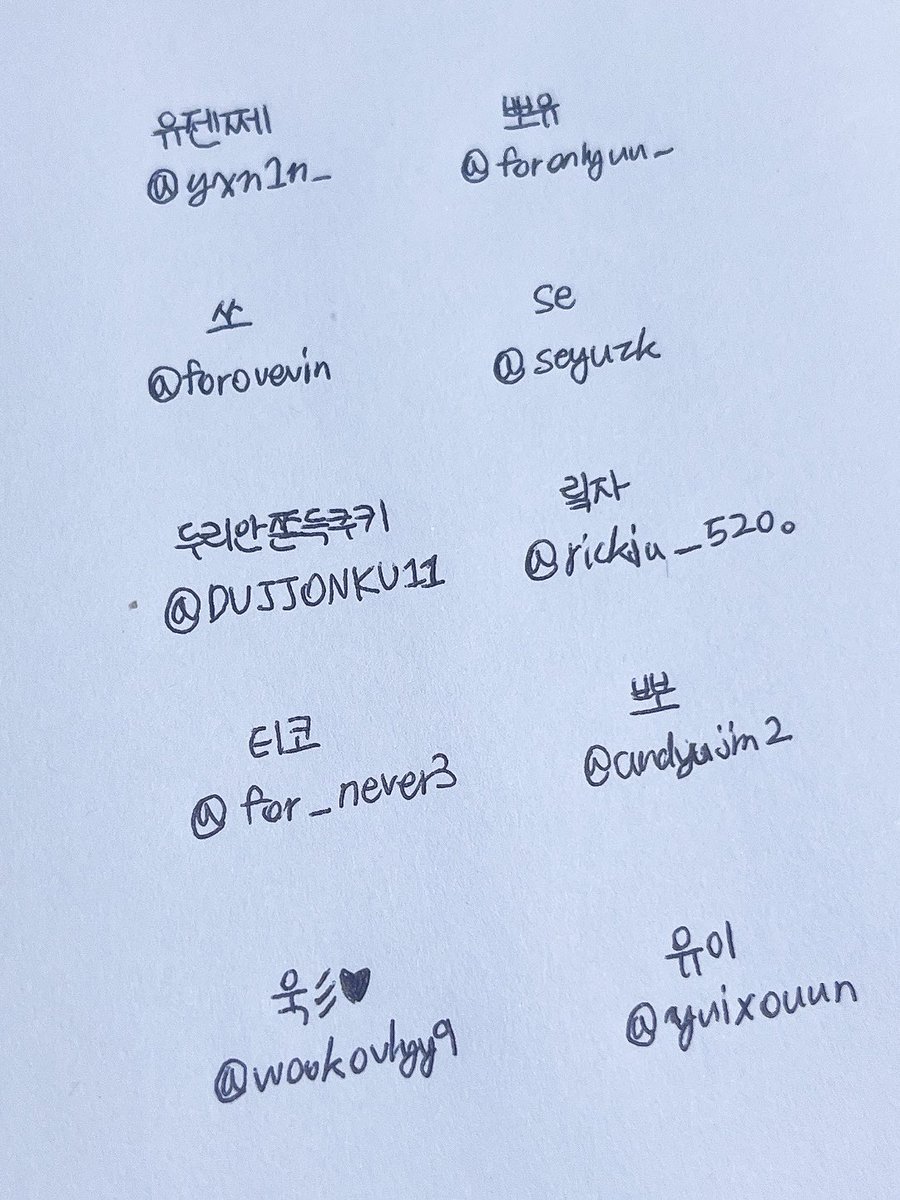 유텐쩨
@yxn1n_
뽀유
@foronlyuu~
산
@forovevin
se
@seyuzk
두리안쫀득쿠키
@DUJJONKU11
릭자
@rickju_520。
티코
@for_never3
뿌
@andyujin2
욱彡♥
유이
@yuixouun